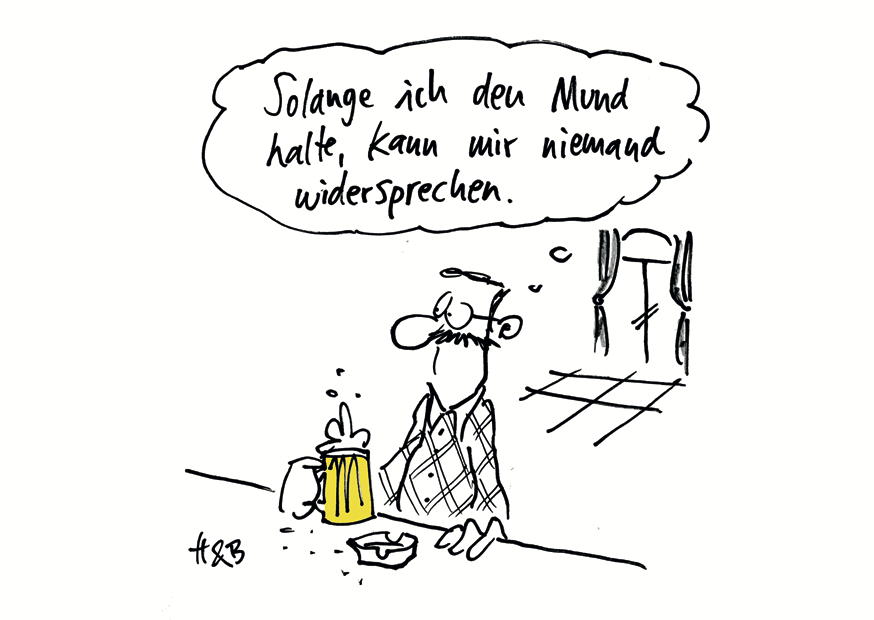 Solange ich den Mund
halte, kann mir niemand
widersprechen.
H&B